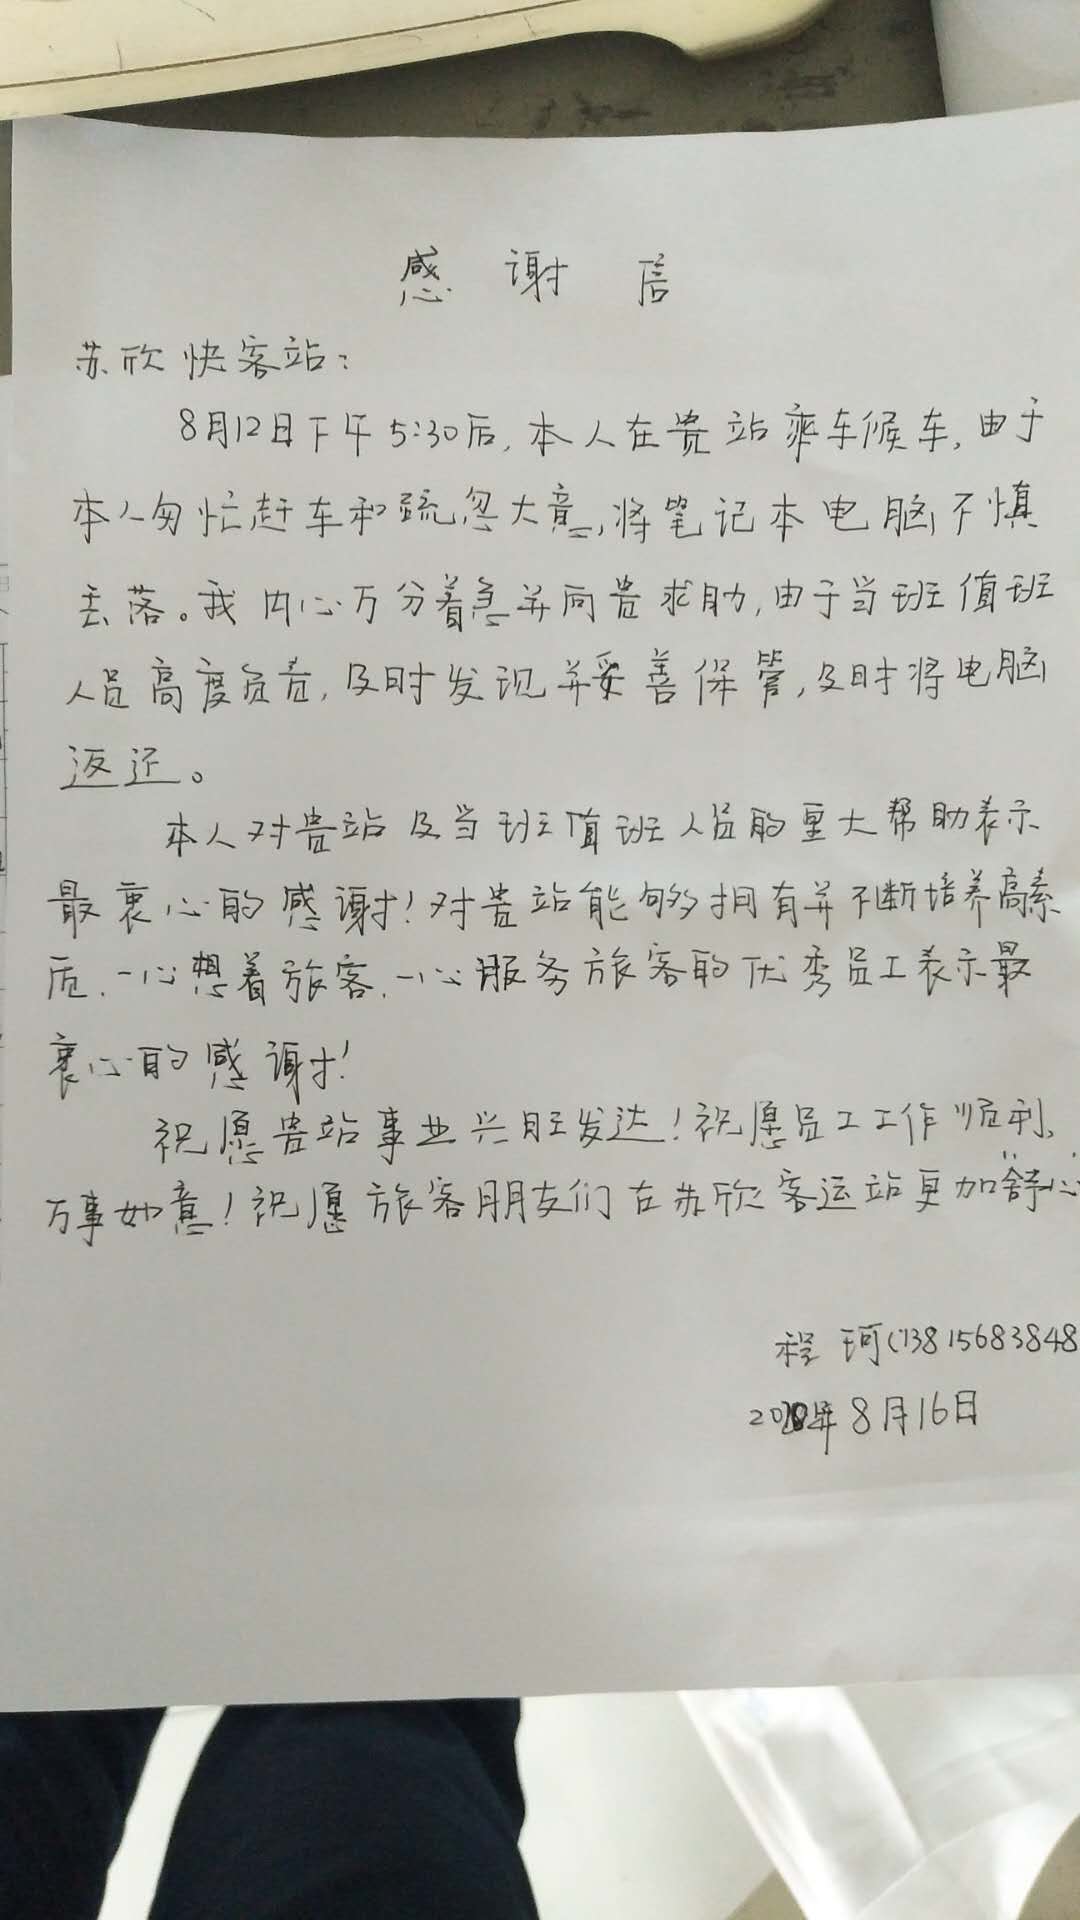 感谢信
苏欣快客站：
8月12日下午5:30后,本人在贵站乘车候车,由于
本人匆忙赶车和疏忽大意,将笔记本电脑不慎
丢落。我内心万分着急并向贵求助,由于当班值班
人员高度负责,及时发现并妥善保管,及时将电脑
返还。
本人对贵站及当班值班人员的重大帮助表示
最衷心的感谢!对贵站能够拥有并不断培养高素
质、一心想着旅客、一心服务旅客的优秀员工表示最
衷心的感谢!
祝愿贵站事业兴旺发达!祝愿员工工作顺利、
万事如意!祝愿旅客朋友们在苏欣客运站更加舒心
程珂(13815683848
年8月16日